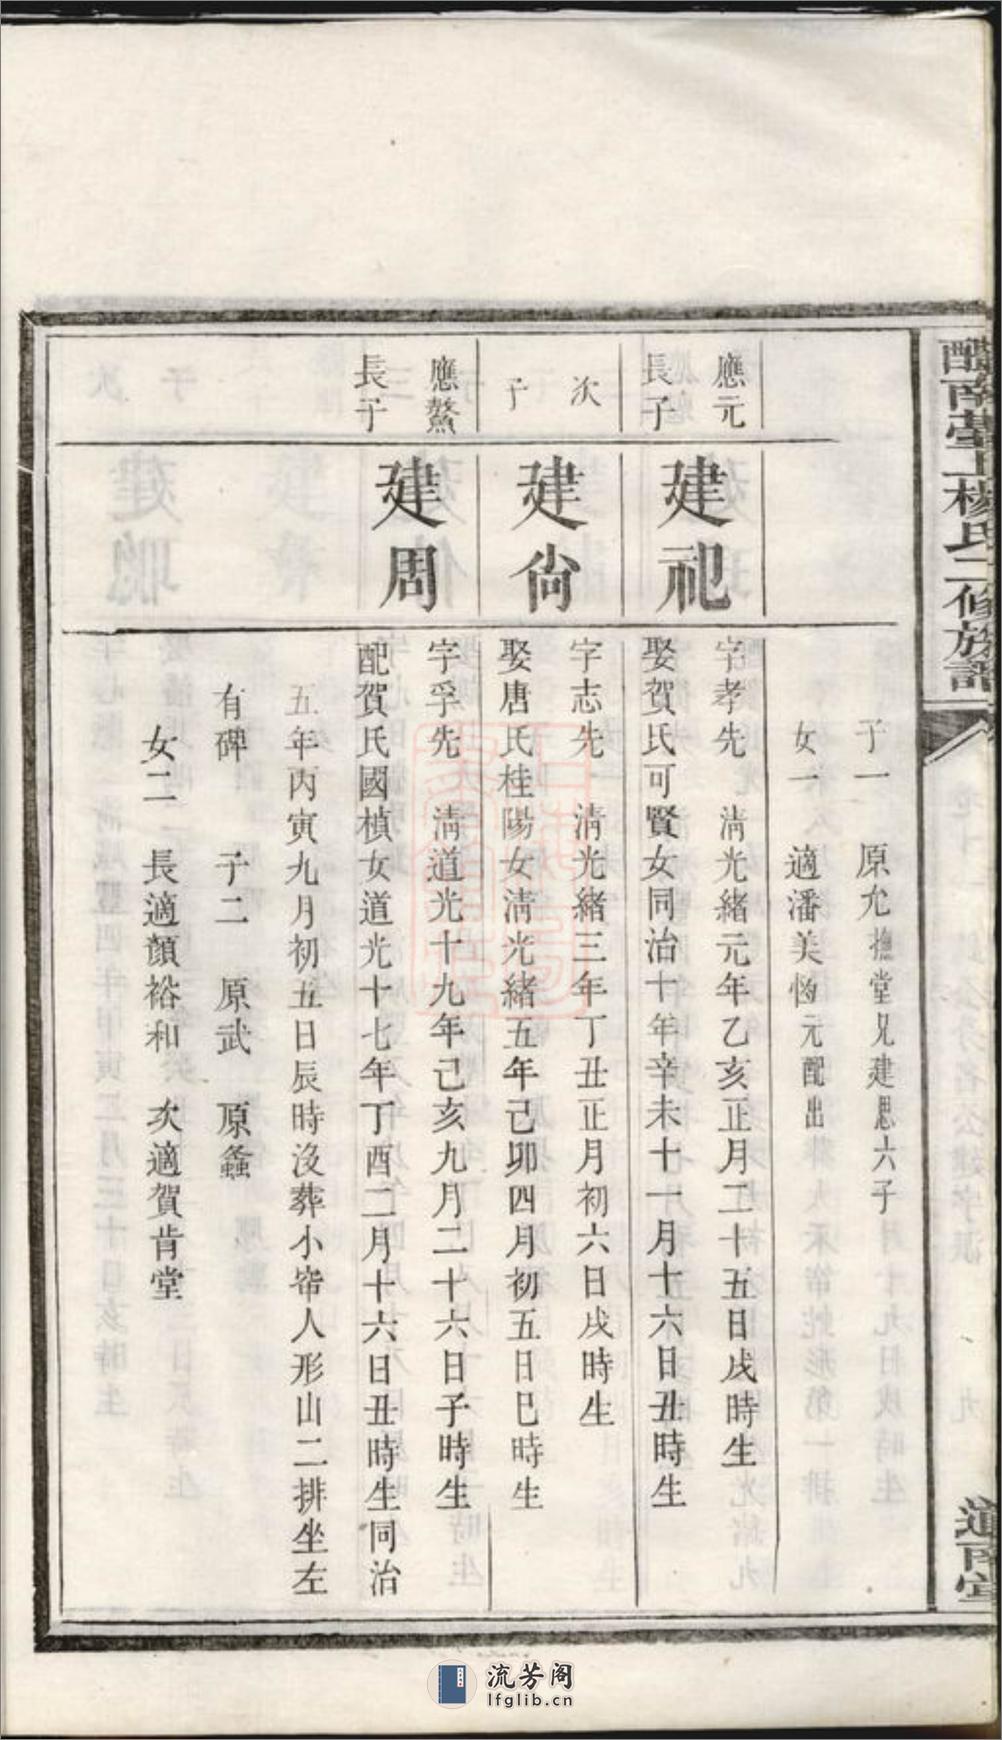 醴南營上楊氏二修族譜
道南堂
子一 原允撫堂兄建思六子
女一 適潘美恆元配出
應元
長子
建祀
字孝先 清光緒元年乙亥正月二十五日戌時生
娶賀氏可賢女同治十年辛未十一月十六日丑時生
次
子
建尙
字志先 清光緒三年丁丑正月初六日戌時生
娶唐氏桂陽女清光緒五年己卯四月初五日巳時生
應鰲
長子
建周
字孚先 清道光十九年己亥九月二十六日子時生
配賀氏國楨女道光十七年丁酉二月十六日丑時生同治
五年丙寅九月初五日辰時沒葬小帘人形山二排坐左
有碑 子二 原武 原螽
女二 長適顏裕和 次適賀肯堂
流芳阁
lfglib.cn